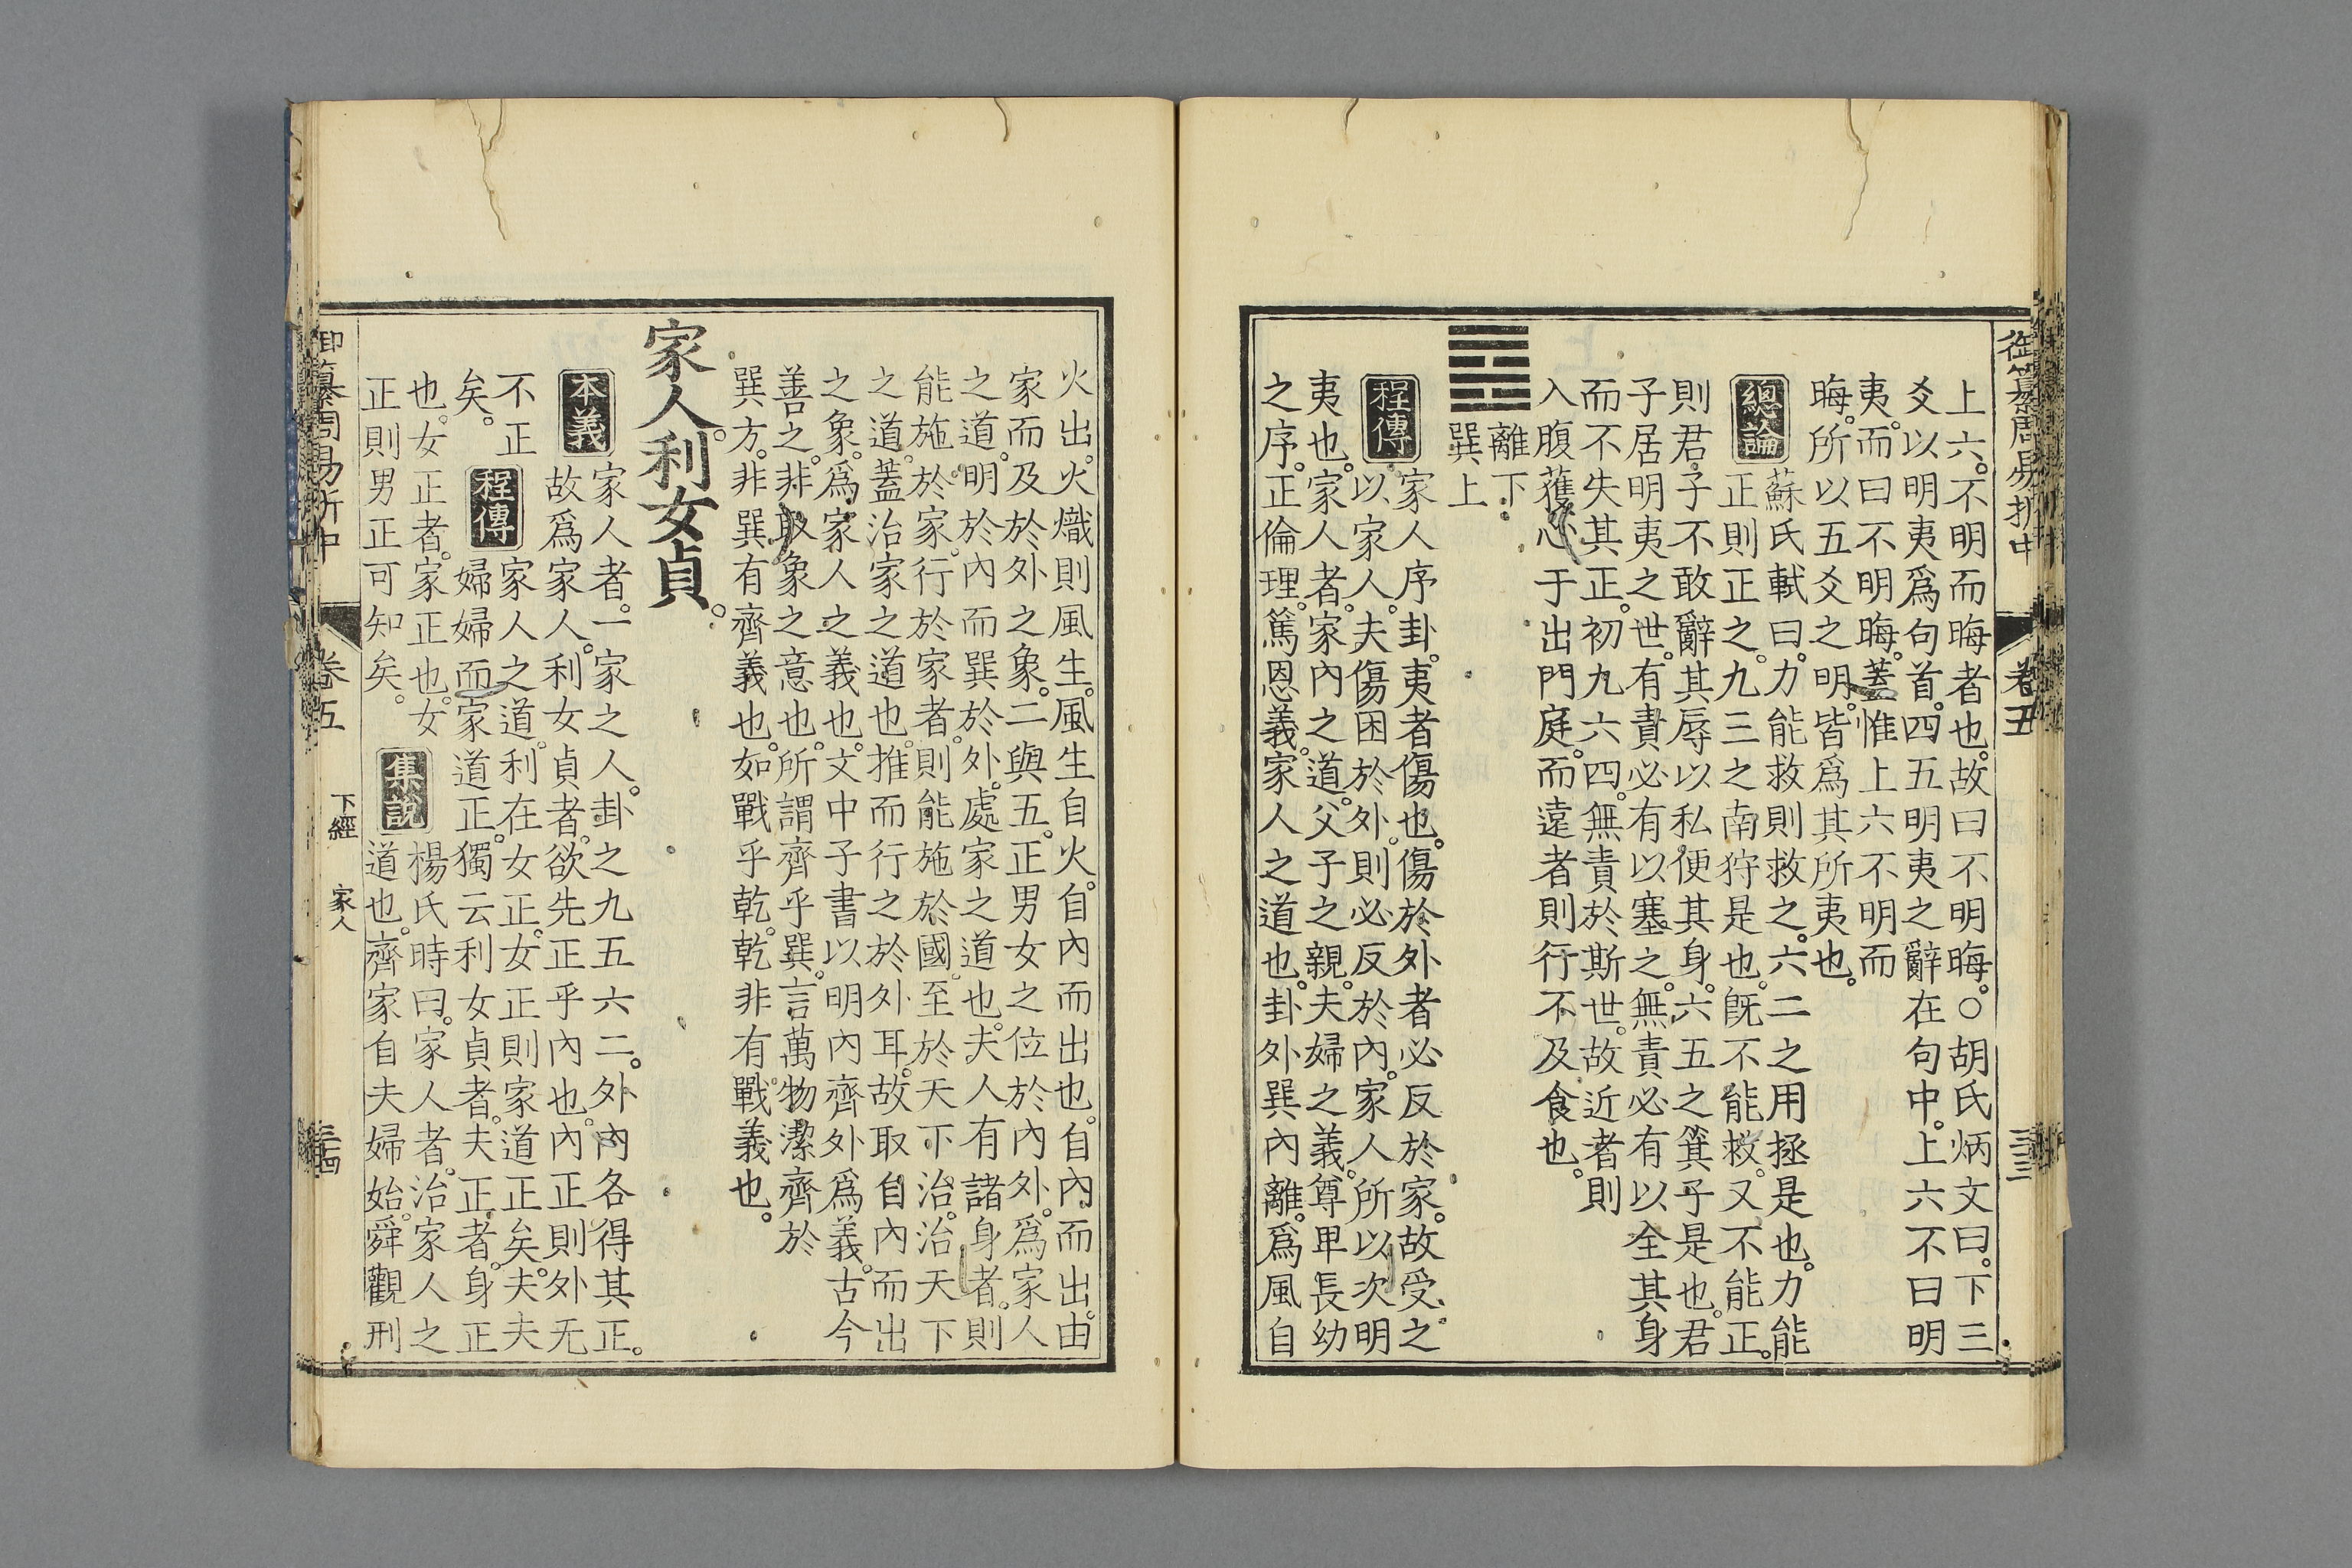 御纂周易折中 卷五 三三
上六。不明而晦者也。故曰不明晦。○胡氏炳文曰。下三
爻以明夷爲句首。四五明夷之辭在句中。上六不曰明
夷。而曰不明晦。蓋惟上六不明而
晦。所以五爻之明。皆爲其所夷也。
總論 蘇氏軾曰。力能救則救之。六二之用拯是也。力能
正則正之。九三之南狩是也。旣不能救。又不能正。
則君子不敢辭其辱以私便其身。六五之箕子是也。君
子居明夷之世。有責必有以塞之。無責必有以全其身
而不失其正。初九六四。無責於斯世。故近者則
入腹獲心于出門庭。而遠者則行不及食也。
離下
巽上
程傳 家人序卦。夷者傷也。傷於外者必反於家。故受之
以家人。夫傷困於外。則必反於內。家人所以次明
夷也。家人者。家內之道。父子之親。夫婦之義。尊卑長幼
之序。正倫理。篤恩義。家人之道也。卦外巽內離。爲風自
火出。火熾則風生。風生自火。自內而出也。自內而出。由
家而及於外之象。二與五。正男女之位於內外。爲家人
之道。明於內而巽於外。處家之道也。夫人有諸身者。則
能施於家。行於家者。則能施於國。至於天下治。治天下
之道。蓋治家之道也。推而行之於外耳。故取自內而出
之象。爲家人之義也。文中子書以明內齊外爲義。古今
善之。非取象之意也。所謂齊乎巽。言萬物潔齊於
巽方。非巽有齊義也。如戰乎乾。乾非有戰義也。
家人。利女貞。
本義 家人者。一家之人。卦之九五六二。外內各得其正。
故爲家人。利女貞者。欲先正乎內也。內正則外无
不正
矣。
程傳 家人之道。利在女正。女正則家道正矣。夫夫
婦婦而家道正。獨云利女貞者。夫正者。身正
也。女正者。家正也。女
正則男正可知矣。
集說 楊氏時曰。家人者。治家人之
道也。齊家自夫婦始。舜觀刑
御纂周易折中 卷五 下經 家人 三四